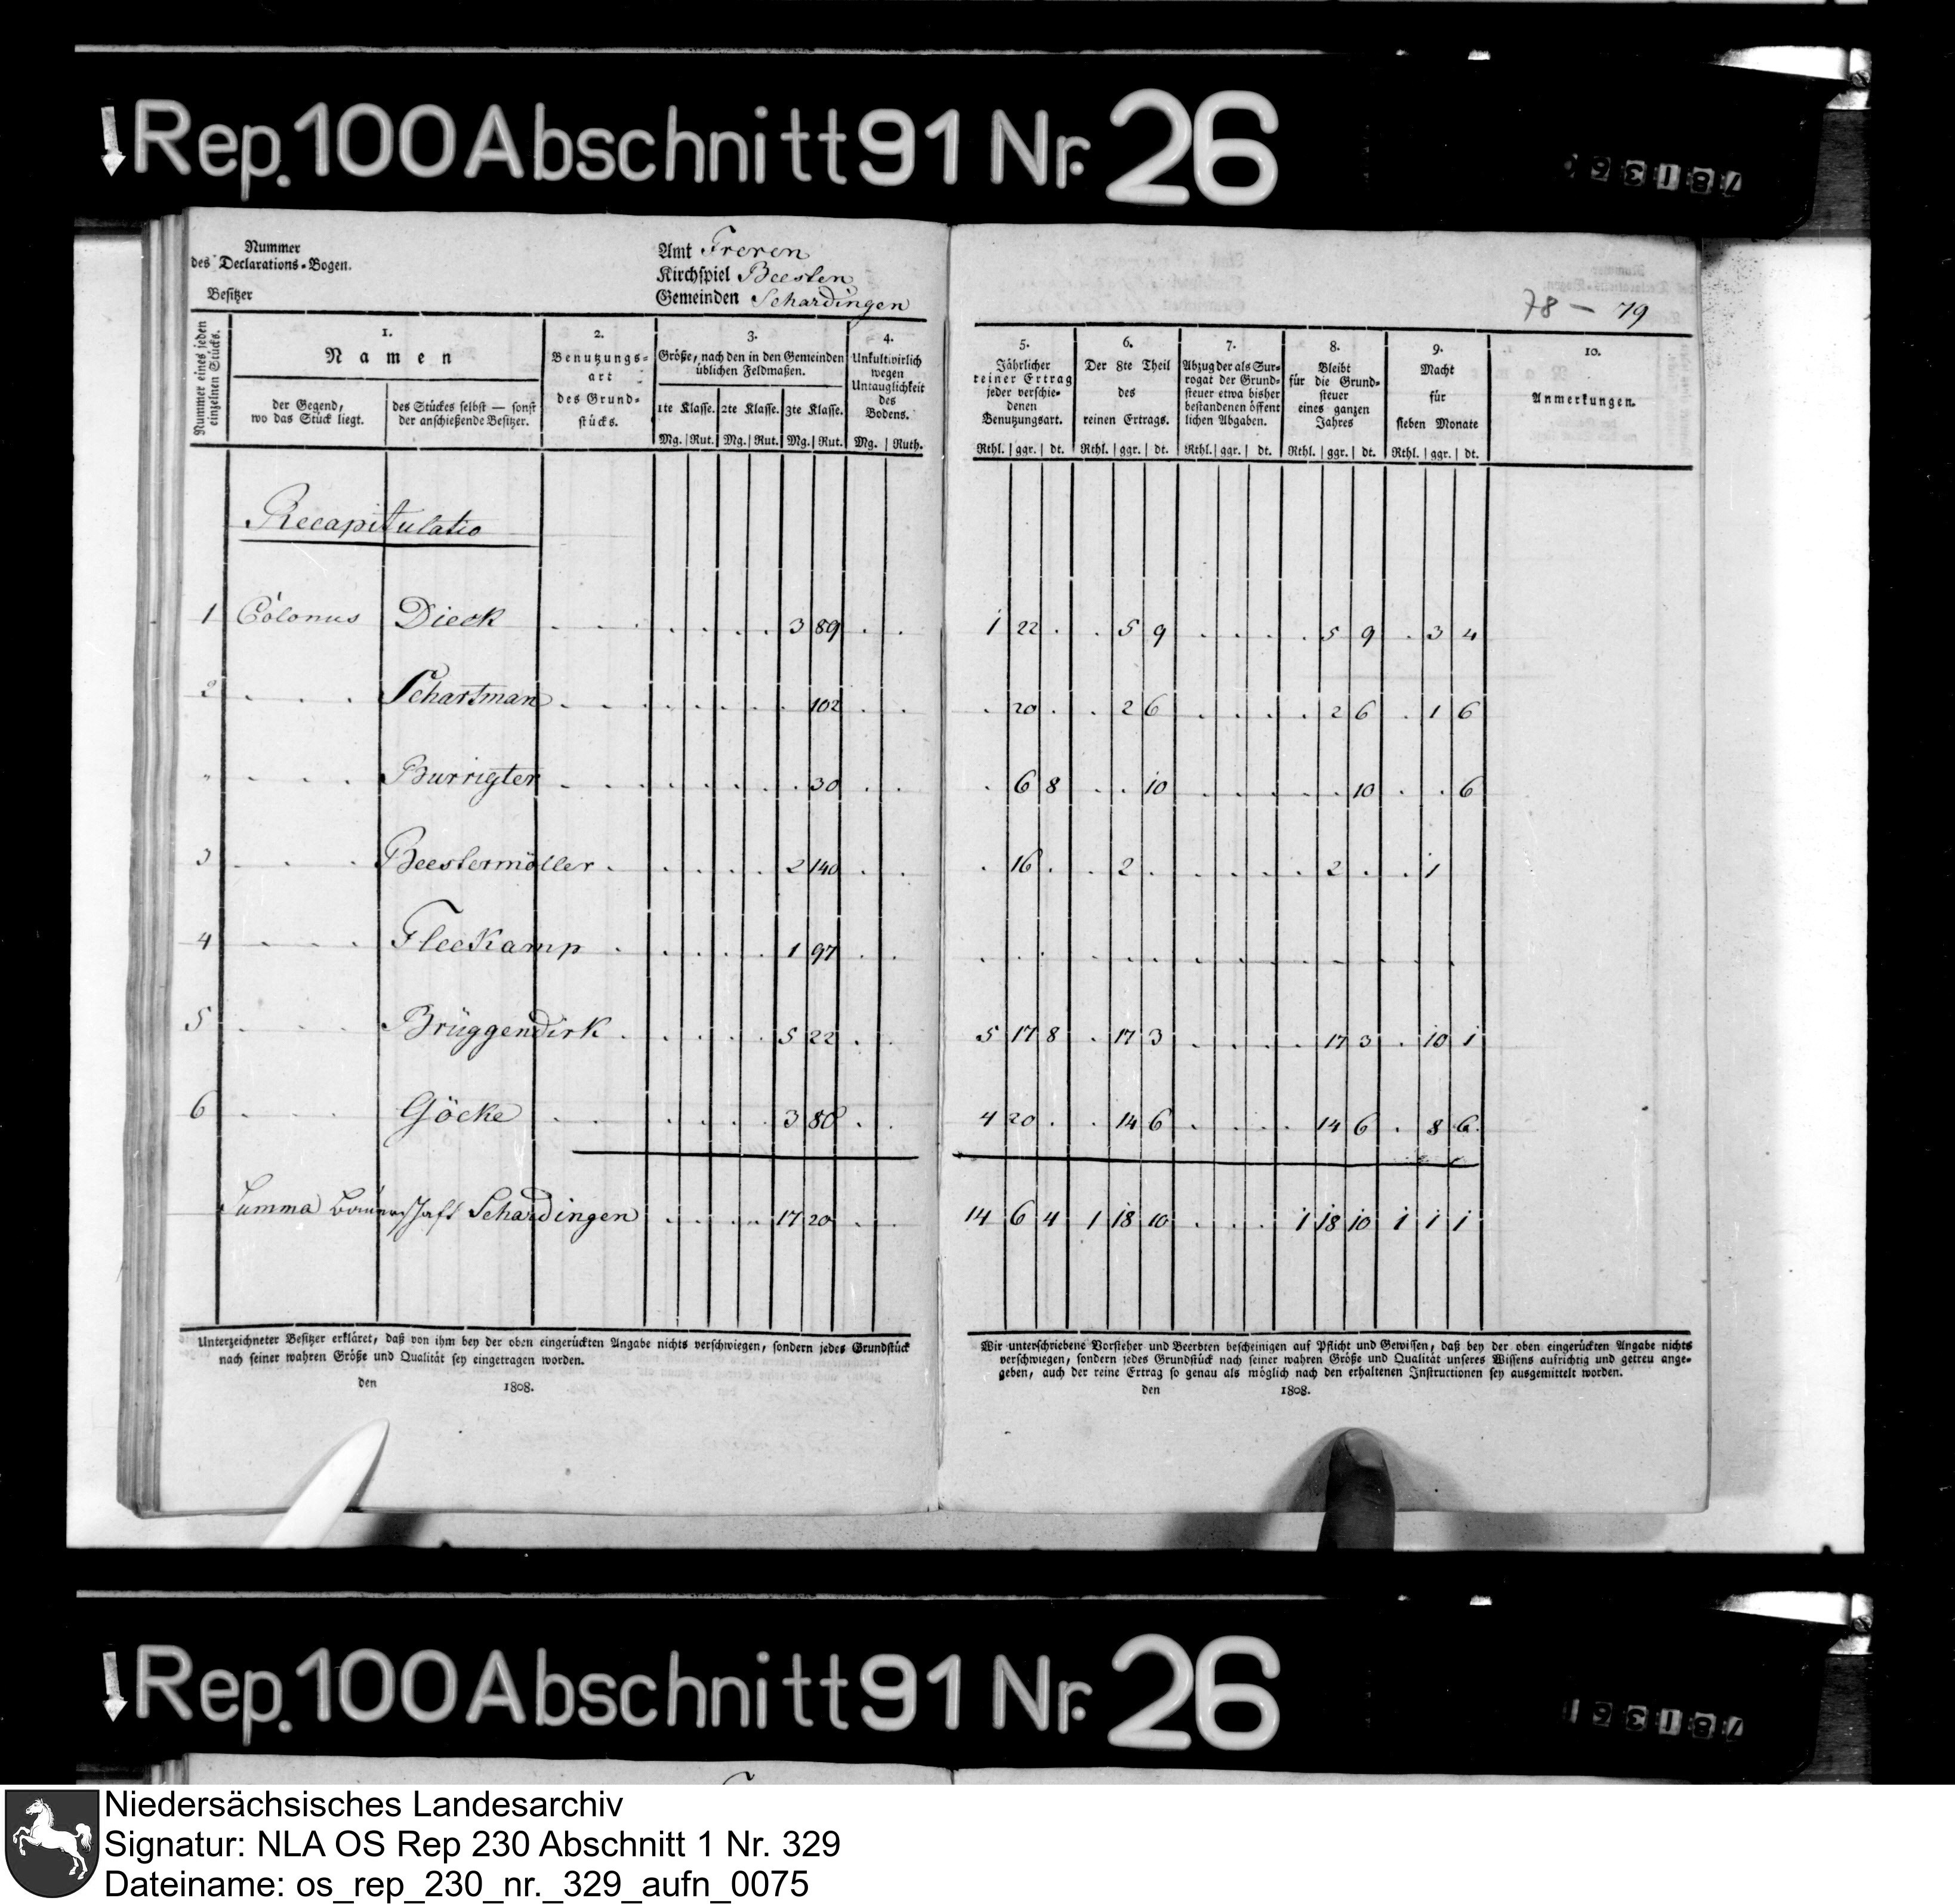 Rep. 100 Abschnitt 91 Nr. 26
Nummer
des Declarations-Bogen.
Besitzer
Amt Freren
Kirchspiel Beesten
Gemeinden Schardingen
78 — 79
Nummer eines jeden
einzelnen Stücks.
1.
Namen
der Gegend,
wo das Stück liegt.
des Stückes selbst — sonst
der anschießende Besitzer.
2.
Benutzungs-
art
des Grund-
stücks.
3.
Größe, nach den in den Gemeinden
üblichen Feldmaßen.
1te Klasse. 2te Klasse. 3te Klasse.
Mg. Rut. Mg. Rut. Mg. Rut.
4.
Unkultivirlich
wegen
Untauglichkeit
des
Bodens.
Mg. Ruth.
5.
Jährlicher
reiner Ertrag
jeder verschie-
denen
Benutzungsart.
Rthl. ggr. dt.
6.
Der 8te Theil
des
reinen Ertrags.
Rthl. ggr. dt.
7.
Abzug der als Sur-
rogat der Grund-
steuer etwa bisher
bestandenen öffent
lichen Abgaben.
Rthl. ggr. dt.
8.
Bleibt
für die Grund-
steuer
eines ganzen
Jahres
Rthl. ggr. dt.
9.
Macht
für
sieben Monate
Rthl. ggr. dt.
10.
Anmerkungen.
Recapitulatio
1 Colonus Dieck 3 89 1 22 . . 5 9 . . . . 5 9 . 3 4
2 Schartman 102 . 20 . . 2 6 . . . . 2 6 . 1 6
" Burrigter 30 . 6 8 . . 10 . . . . . 10 . . 6
3 Beestermöller 2 140 . 16 . . 2 . . . . . 2 . . 1
4 Fleekamp 1 97
5 Brüggendirk 5 22 5 17 8 . 17 3 . . . . 17 3 . 10 1
6 Göcke 3 80 4 20 . . 14 6 . . . . 14 6 . 8 6
Summa Bauerschaft Schardingen 17 20 14 6 4 1 18 10 . . . 1 18 10 1 1 1
Unterzeichneter Besitzer erkläret, daß von ihm bey der oben eingerückten Angabe nichts verschwiegen, sondern jedes Grundstück
nach seiner wahren Größe und Qualität sey eingetragen worden.
den 1808.
Wir unterschriebene Vorsteher und Beerbten bescheinigen auf Pflicht und Gewissen, daß bey der oben eingerückten Angabe nichts
verschwiegen, sondern jedes Grundstück nach seiner wahren Größe und Qualität unseres Wissens aufrichtig und getreu ange-
geben, auch der reine Ertrag so genau als möglich nach den erhaltenen Instructionen sey ausgemittelt worden.
den 1808.
Rep. 100 Abschnitt 91 Nr. 26
Niedersächsisches Landesarchiv
Signatur: NLA OS Rep 230 Abschnitt 1 Nr. 329
Dateiname: os_rep_230_nr._329_aufn_0075